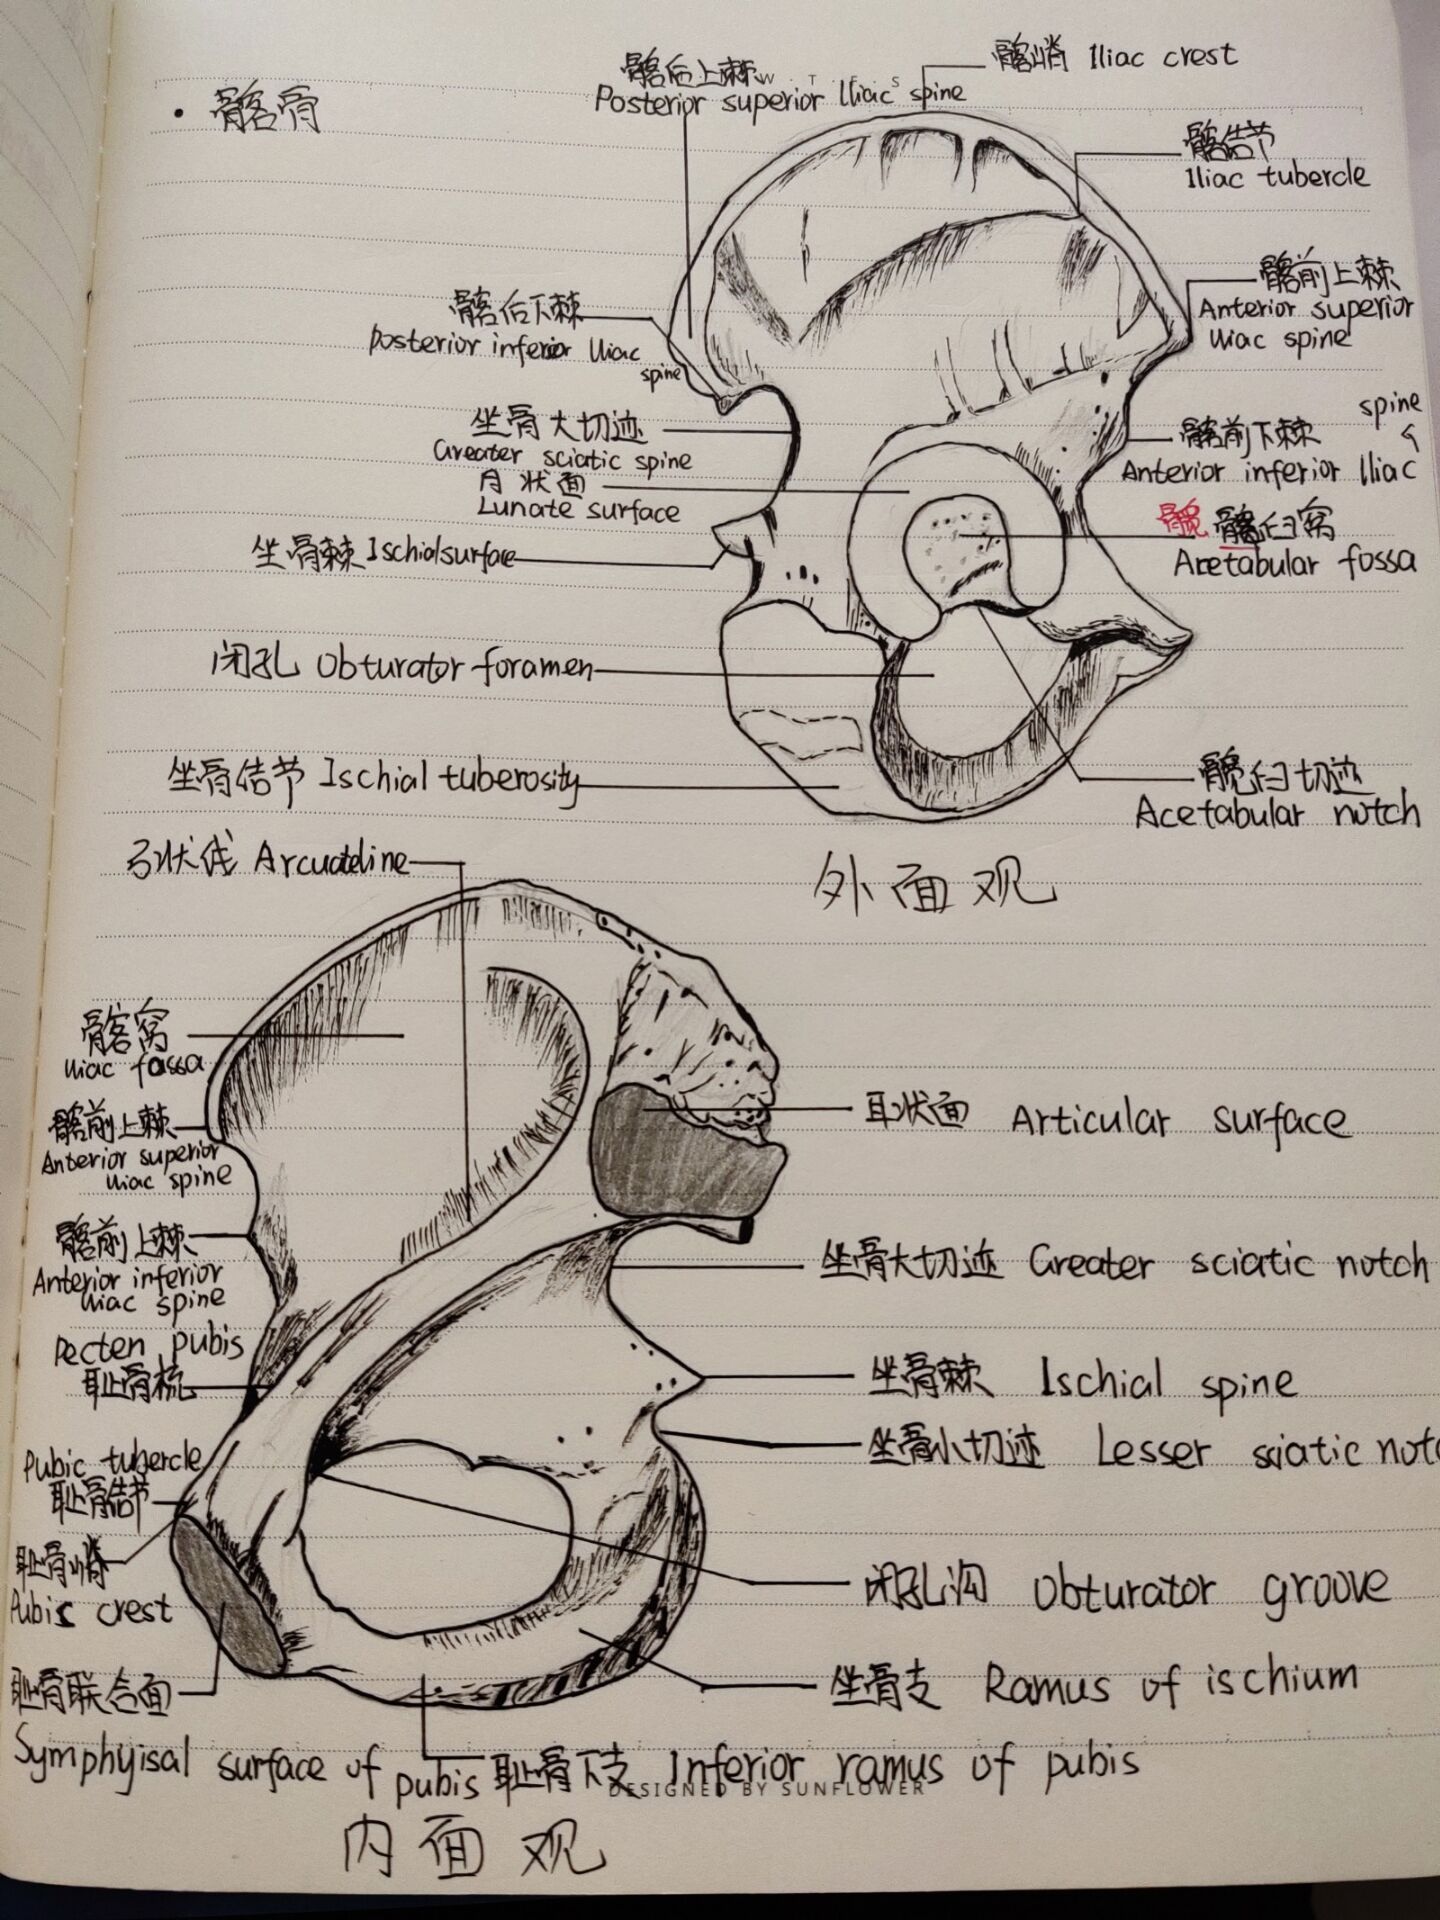 · 髂骨
髂后上棘
Posterior superior Iliac spine
髂嵴 Iliac crest
髂结节
Iliac tubercle
髂前上棘
Anterior superior
iliac spine
髂后下棘
posterior inferior Iliac
spine
坐骨大切迹
Greater sciatic spine
月状面
Lunate surface
spine
髂前下棘
Anterior inferior Iliac
坐骨棘 Ischial surface
髋 髂臼窝
Acetabular fossa
闭孔 Obturator foramen
坐骨结节 Ischial tuberosity
髋臼切迹
Acetabular notch
弓状线 Arcuate line
外面观
髂窝
iliac fossa
髂前上棘
Anterior superior
iliac spine
耳状面 Articular surface
髂前上棘
Anterior inferior
iliac spine
坐骨大切迹 Greater sciatic notch
Pecten pubis
耻骨梳
坐骨棘 Ischial spine
Pubic tubercle
耻骨结节
坐骨小切迹 Lesser sciatic notc
耻骨嵴
Pubis crest
闭孔沟 Obturator groove
耻骨联合面
Symphyisal surface of pubis
坐骨支 Ramus of ischium
耻骨下支 Inferior ramus of pubis
DESIGNED BY SUNFLOWER
内面观